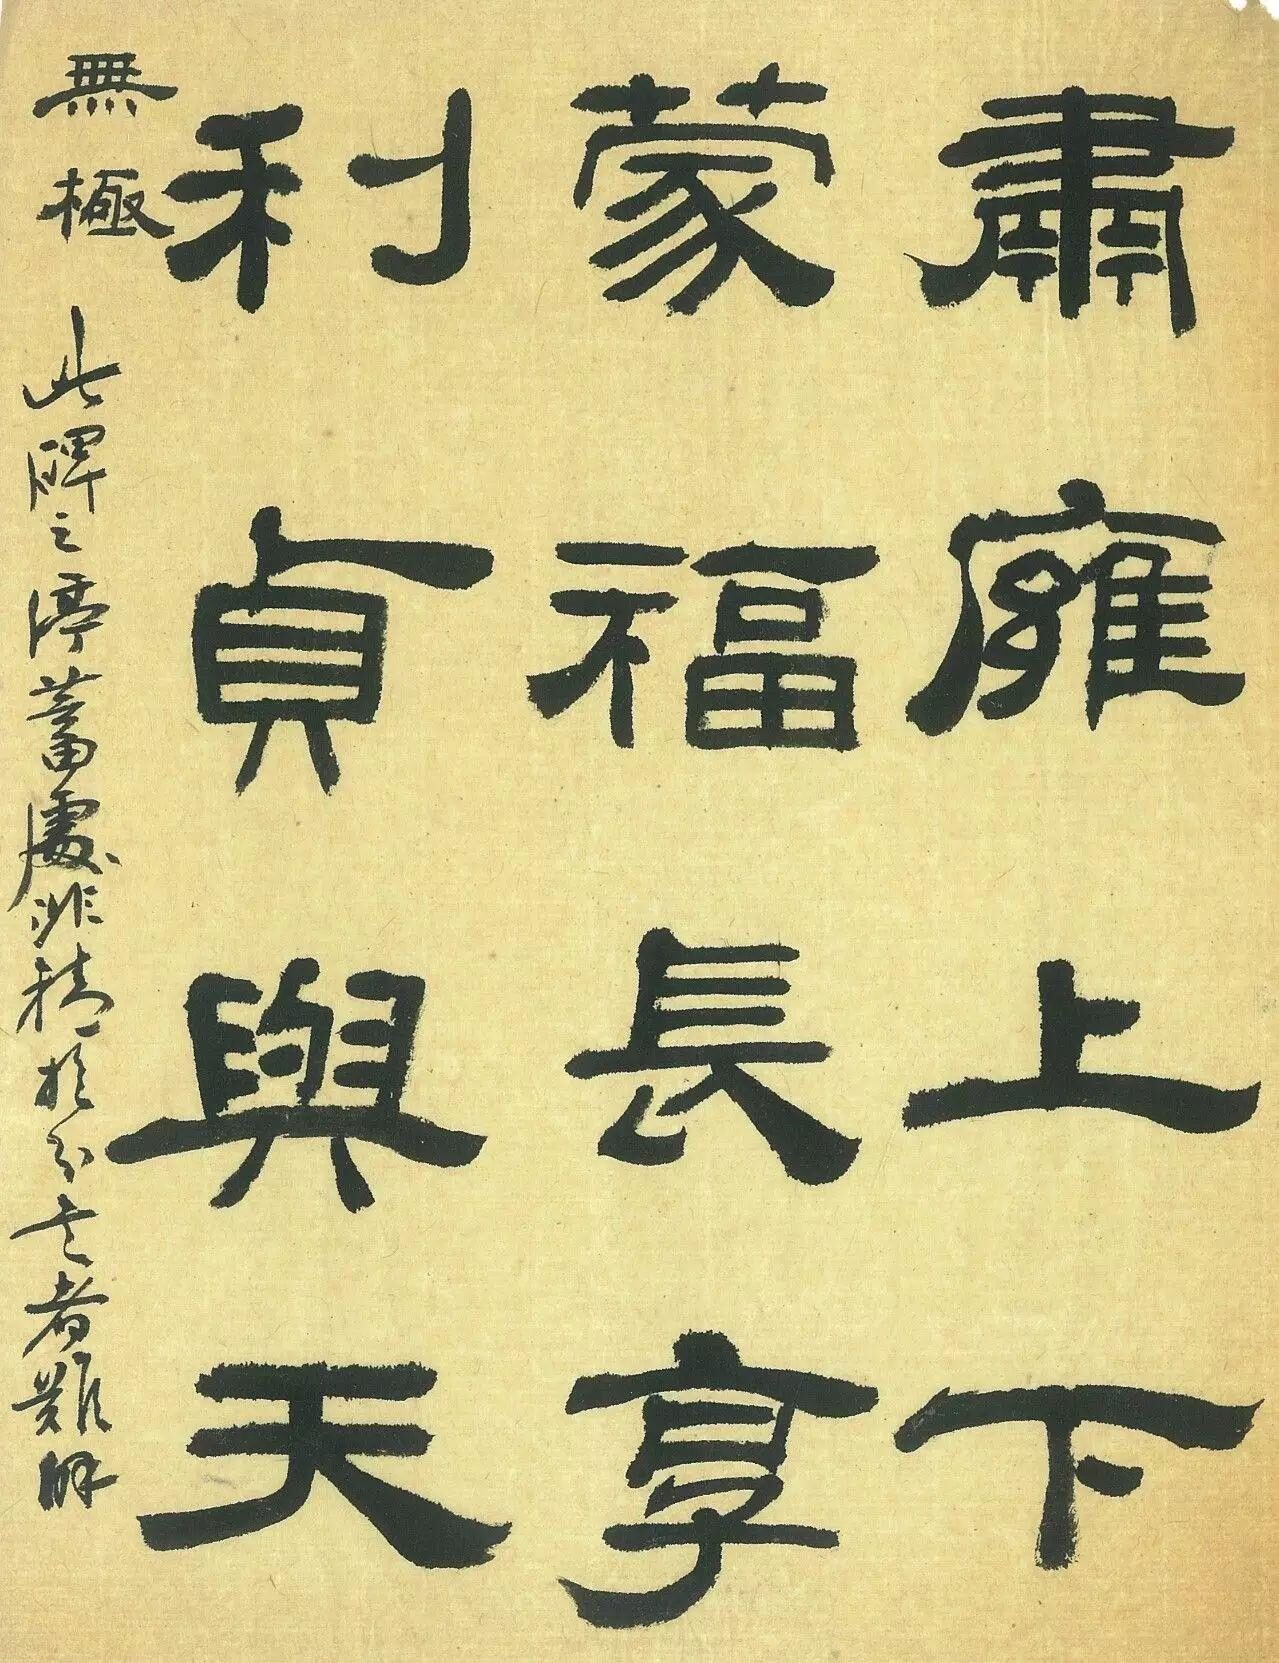 肅雍上下
蒙福長享
利貞與天
無極 此碑之渟蓄處非精於分書者難解